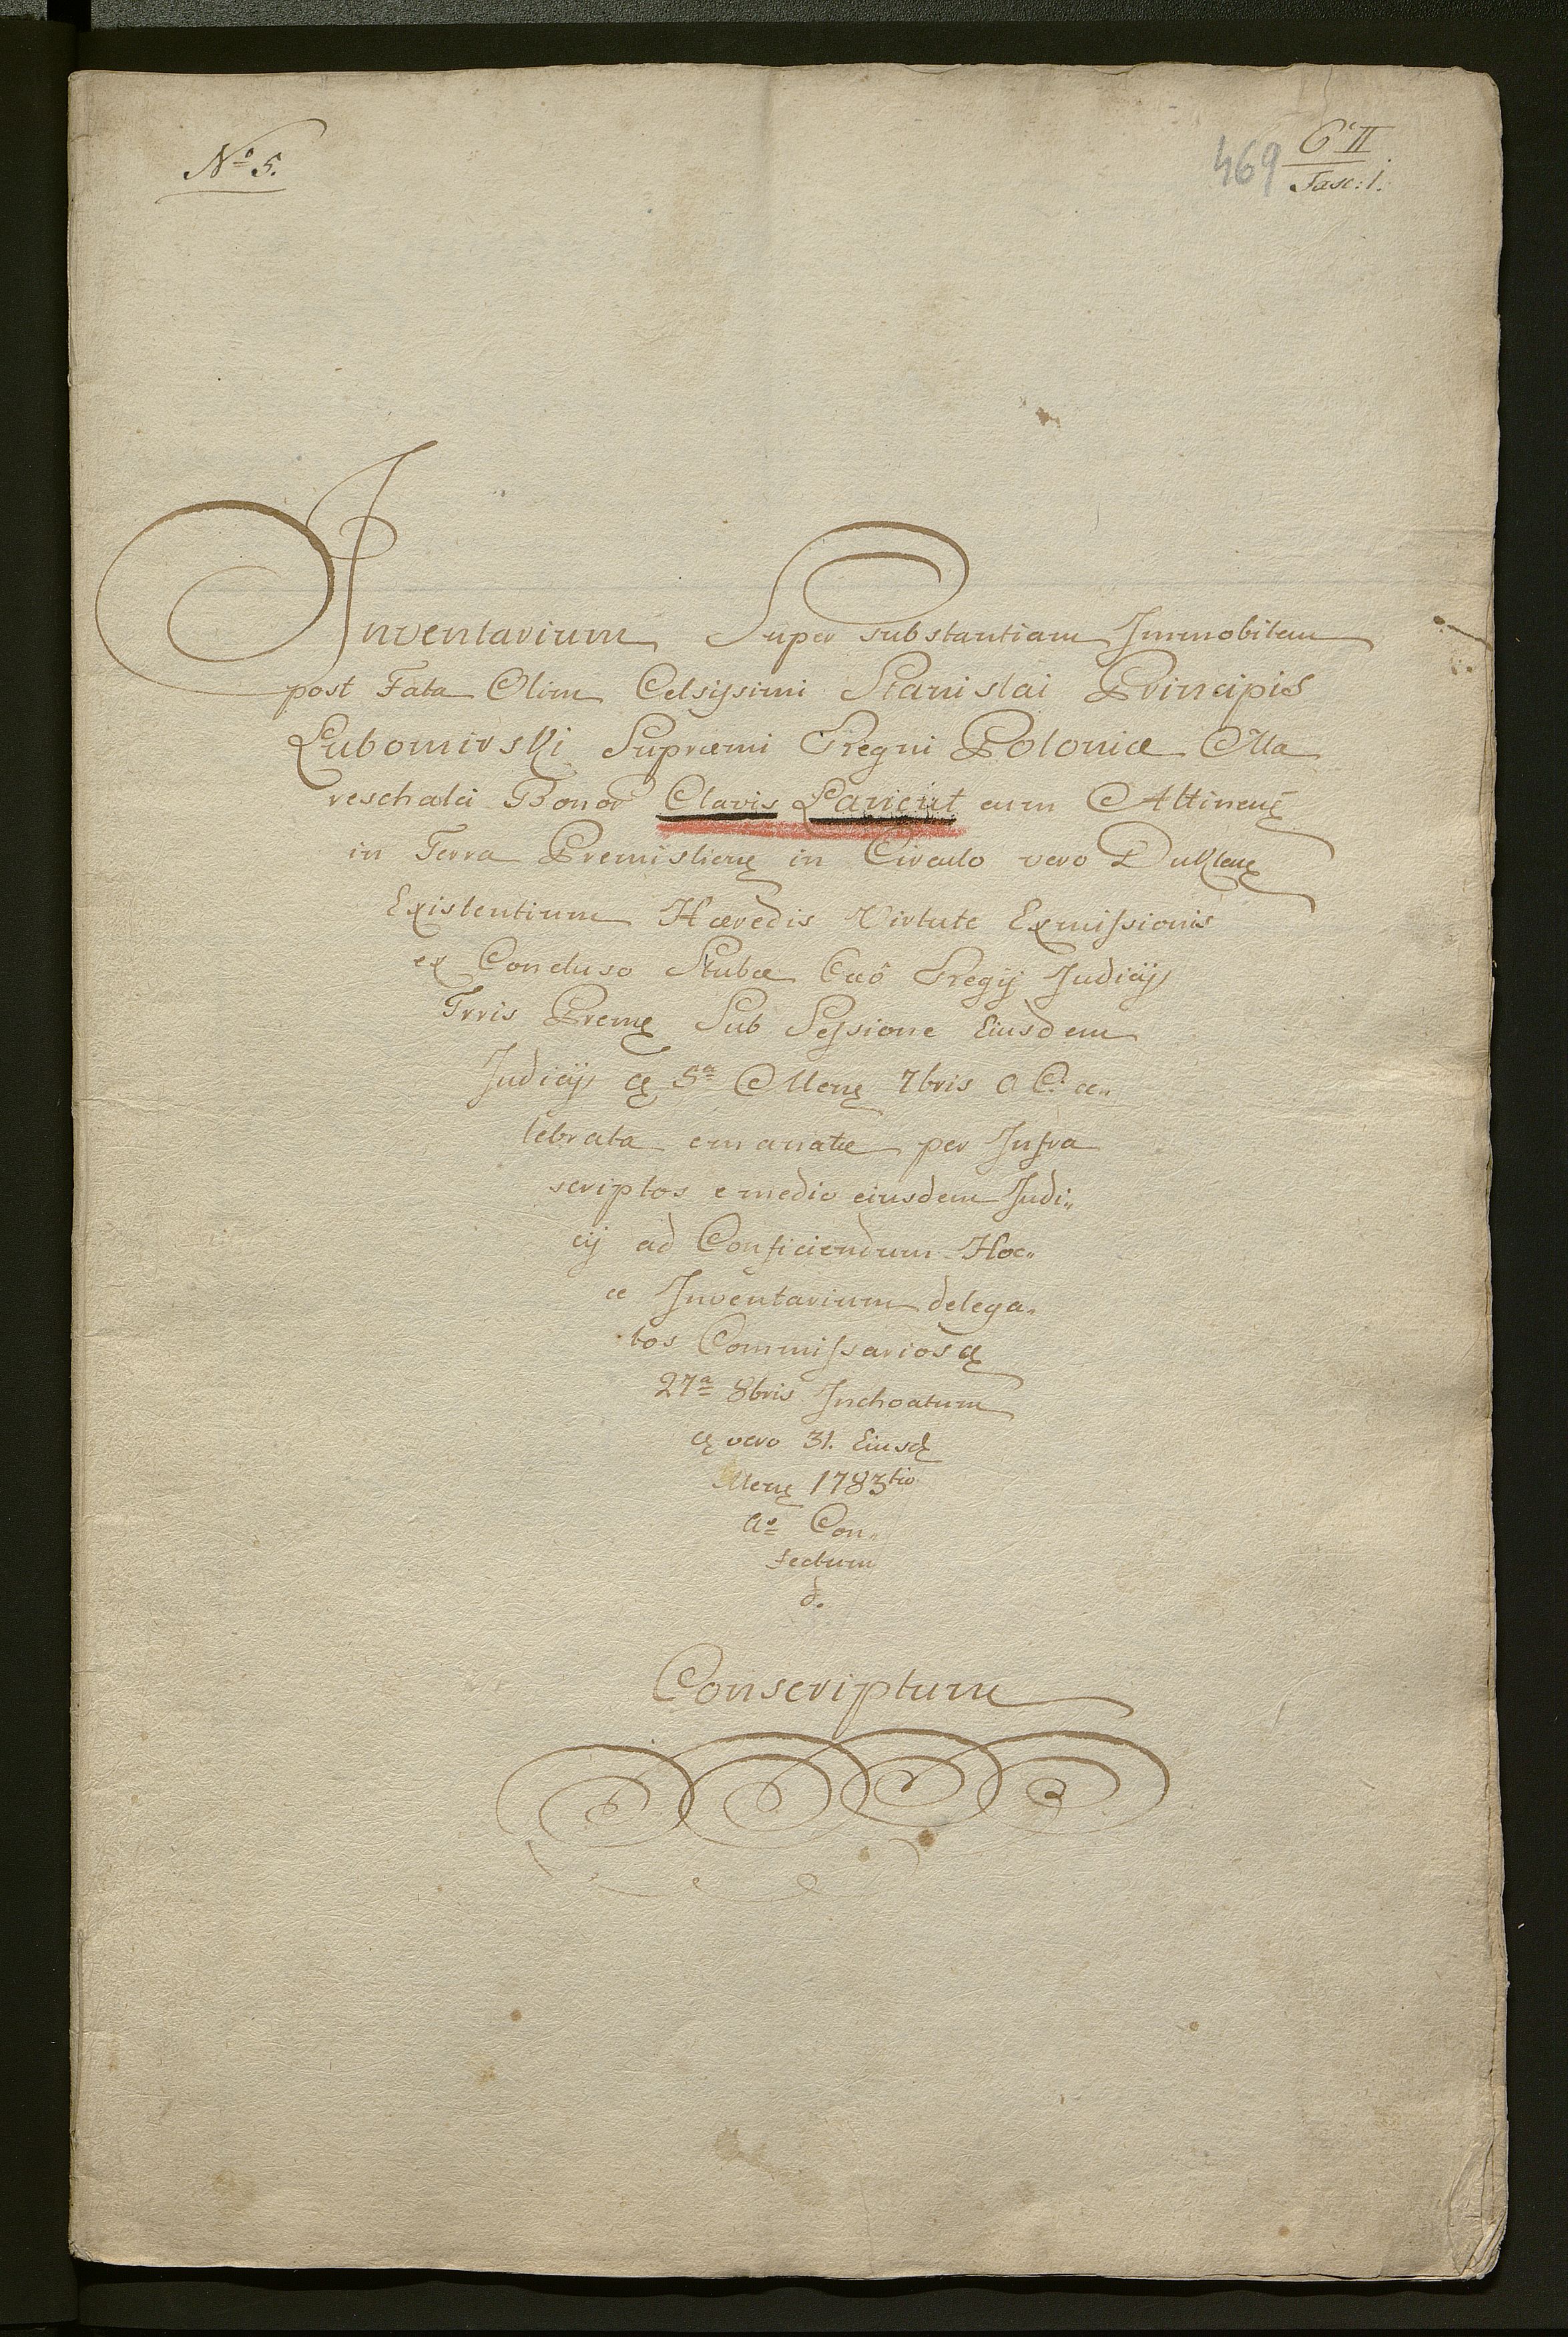 No 5.
469 C II
Fasc: 1.
Inventarium Super substantiam Immobilem
post Fata Olim Celsissimi Stanislai Principis
Lubomirski Supraemi Regni Poloniae Ma
reschalci Bonor Clavis Łańcut cum Attineñ
in Terra Premislienȩ in Circulo vero Duklenȩ
Existentium Haeredis Virtute Exmissionis
ex Concluso Stubae Regij Judicij
Trris Premȩ Sub Sessione Eiusdem
Judicij 5a Menȩ 7bris a C. ce„
lebrata emanatae per Infra
scriptos e medio eiusdem Judi„
cij ad Conficiendum Hoc„
ce Inventarium delega„
tos Commissarios
27a 8bris Inchoatum
vero 31. Eiusd
Menȩ 1783tio
Ao Con„
fectum
d.
Conscriptum